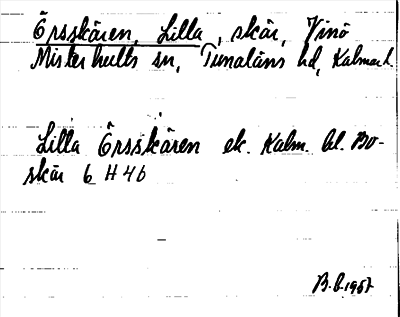 Örsskären, Lilla, skär, Vinö
Misterhults sn, Tunaläns hd, Kalmar l.
Lilla Örsskären ek. Kalm. bl. Bo-
skär 6 H 4 b
B.B. 1957